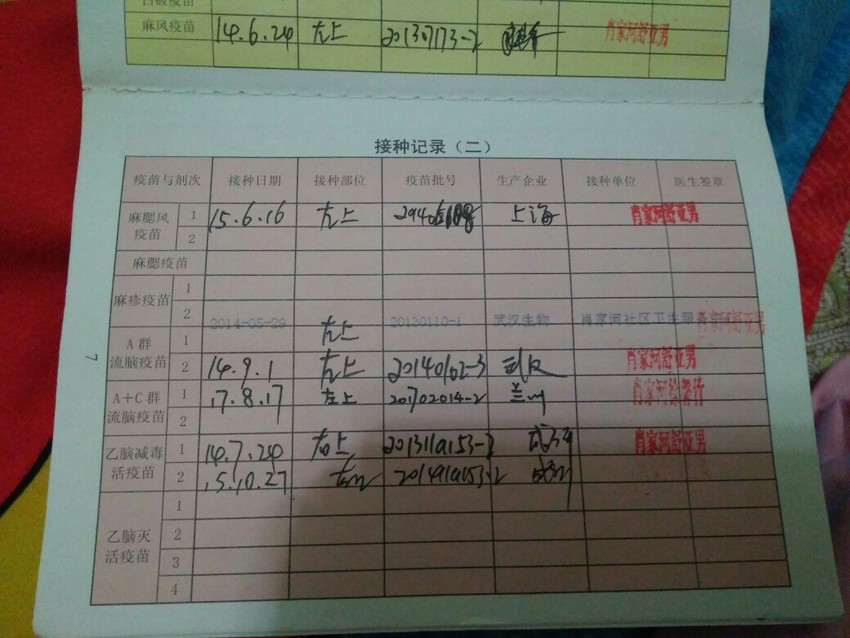 白破疫苗
麻风疫苗 14.6.24 左上 201307173-2 肖家河舒亚男
接种记录（二）
疫苗与剂次 接种日期 接种部位 疫苗批号 生产企业 接种单位 医生签章
麻腮风疫苗 1 15.6.16 左上 上海 肖家河舒亚男
2
麻腮疫苗
麻疹疫苗 1
2
A群流脑疫苗 1 2014-05-29 左上 20130110-1 武汉生物 肖家河社区卫生服务 肖家河舒亚男
2 14.9.1 左上 20140102-3 武汉 肖家河舒亚男
A+C群流脑疫苗 1 17.8.17 左上 201702014-2 兰州 肖家河
2
乙脑减毒活疫苗 1 14.7.24 右上 肖家河舒亚男
2 15.10.27
乙脑灭活疫苗 1
2
3
4
7